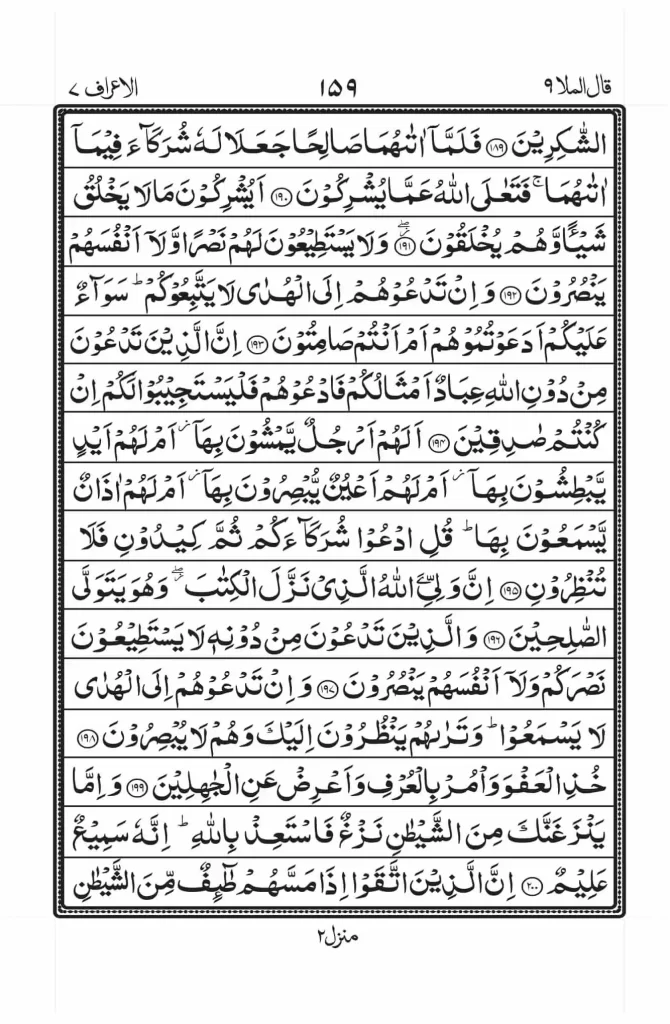 قال الملا ٩ ١٥٩ الاعراف ٧
الشّٰكِرِيۡنَ ﴿۱۸۹﴾ فَلَمَّاۤ اٰتٰٮهُمَا صَالِحًـا جَعَلَا لَهٗ شُرَكَآءَ فِيۡمَاۤ
اٰتٰٮهُمَا‌ ۚ فَتَعٰلَى اللّٰهُ عَمَّا يُشۡرِكُوۡنَ ﴿۱۹۰﴾ اَيُشۡرِكُوۡنَ مَا لَا يَخۡلُقُ
شَيۡـًٔـا وَّهُمۡ يُخۡلَقُوۡنَ ۖ ﴿۱۹۱﴾ وَلَا يَسۡتَطِيۡعُوۡنَ لَهُمۡ نَـصۡرًا وَّلَاۤ اَنۡفُسَهُمۡ
يَنۡصُرُوۡنَ ﴿۱۹۲﴾ وَاِنۡ تَدۡعُوۡهُمۡ اِلَى الۡهُدٰى لَا يَتَّبِعُوۡكُمۡ‌ ؕ سَوَآءٌ
عَلَيۡكُمۡ اَدَعَوۡتُمُوۡهُمۡ اَمۡ اَنۡتُمۡ صَامِتُوۡنَ ﴿۱۹۳﴾ اِنَّ الَّذِيۡنَ تَدۡعُوۡنَ
مِنۡ دُوۡنِ اللّٰهِ عِبَادٌ اَمۡثَالُـكُمۡ فَادۡعُوۡهُمۡ فَلۡيَسۡتَجِيۡبُوۡا لَـكُمۡ اِنۡ
كُنۡتُمۡ صٰدِقِيۡنَ ﴿۱۹۴﴾ اَلَهُمۡ اَرۡجُلٌ يَّمۡشُوۡنَ بِهَاۤ‌ اَمۡ لَهُمۡ اَيۡدٍ
يَّبۡطِشُوۡنَ بِهَاۤ‌ اَمۡ لَهُمۡ اَعۡيُنٌ يُّبۡصِرُوۡنَ بِهَاۤ‌ اَمۡ لَهُمۡ اٰذَانٌ
يَّسۡمَعُوۡنَ بِهَا‌ ؕ قُلِ ادۡعُوۡا شُرَكَآءَكُمۡ ثُمَّ كِيۡدُوۡنِ فَلَا
تُنۡظِرُوۡنِ ﴿۱۹۵﴾ اِنَّ وَلِىِّۦَ اللّٰهُ الَّذِىۡ نَزَّلَ الۡـكِتٰبَ ۖ وَهُوَ يَتَوَلَّى
الصّٰلِحِيۡنَ ﴿۱۹۶﴾ وَالَّذِيۡنَ تَدۡعُوۡنَ مِنۡ دُوۡنِهٖ لَا يَسۡتَطِيۡعُوۡنَ
نَصۡرَكُمۡ وَلَاۤ اَنۡفُسَهُمۡ يَنۡصُرُوۡنَ ﴿۱۹۷﴾ وَاِنۡ تَدۡعُوۡهُمۡ اِلَى الۡهُدٰى
لَا يَسۡمَعُوۡا‌ ؕ وَتَرٰٮهُمۡ يَنۡظُرُوۡنَ اِلَيۡكَ وَهُمۡ لَا يُبۡصِرُوۡنَ ﴿۱۹۸﴾
خُذِ الۡعَفۡوَ وَاۡمُرۡ بِالۡعُرۡفِ وَاَعۡرِضۡ عَنِ الۡجٰهِلِيۡنَ ﴿۱۹۹﴾ وَاِمَّا
يَنۡزَغَنَّكَ مِنَ الشَّيۡطٰنِ نَزۡغٌ فَاسۡتَعِذۡ بِاللّٰهِ‌ ؕ اِنَّهٗ سَمِيۡعٌ
عَلِيۡمٌ ﴿۲۰۰﴾ اِنَّ الَّذِيۡنَ اتَّقَوۡا اِذَا مَسَّهُمۡ طٰۤٮِٕفٌ مِّنَ الشَّيۡطٰنِ
منزل ٢